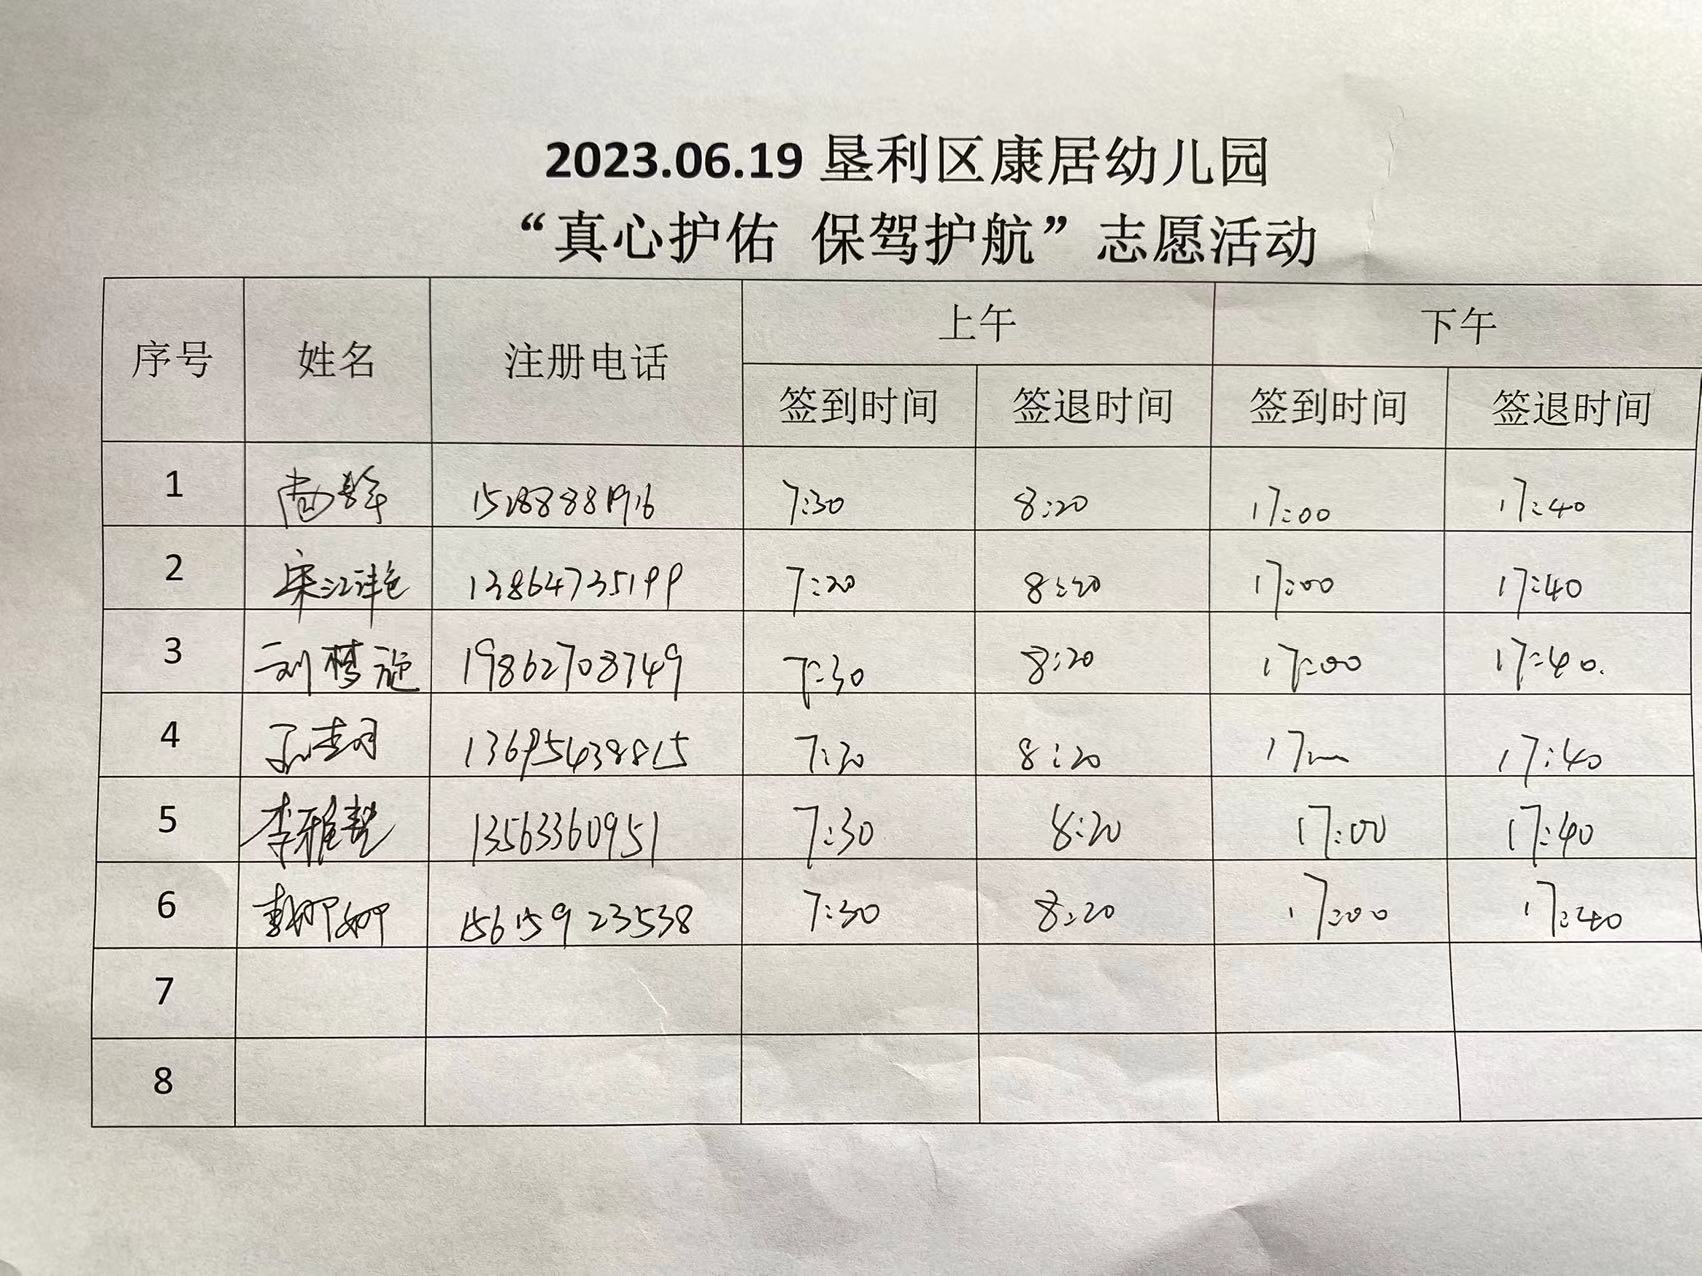 2023.06.19 垦利区康居幼儿园
“真心护佑 保驾护航”志愿活动
序号 姓名 注册电话 上午 下午
签到时间 签退时间 签到时间 签退时间
1 15288881916 7:30 8:20 17:00 17:40
2 宋江艳 13864735199 7:20 8:20 17:00 17:40
3 刘梦旎 19862708749 7:30 8:20 17:00 17:40.
4 13695438815 7:30 8:20 17 17:40
5 李雅 13563360951 7:30 8:20 17:00 17:40
6 15615923538 7:30 8:20 17:00 17:40
7
8